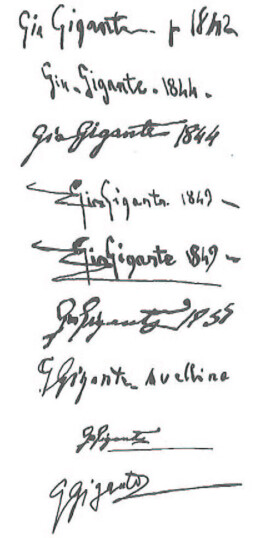 Gia Gigante. p 1842
Gia. Gigante. 1844.
Gia Gigante 1844
Gia Gigante 1849
Gia Gigante 1849
Ga Gigante 1855
G Gigante Avellino
Ga Gigante
G Gigante